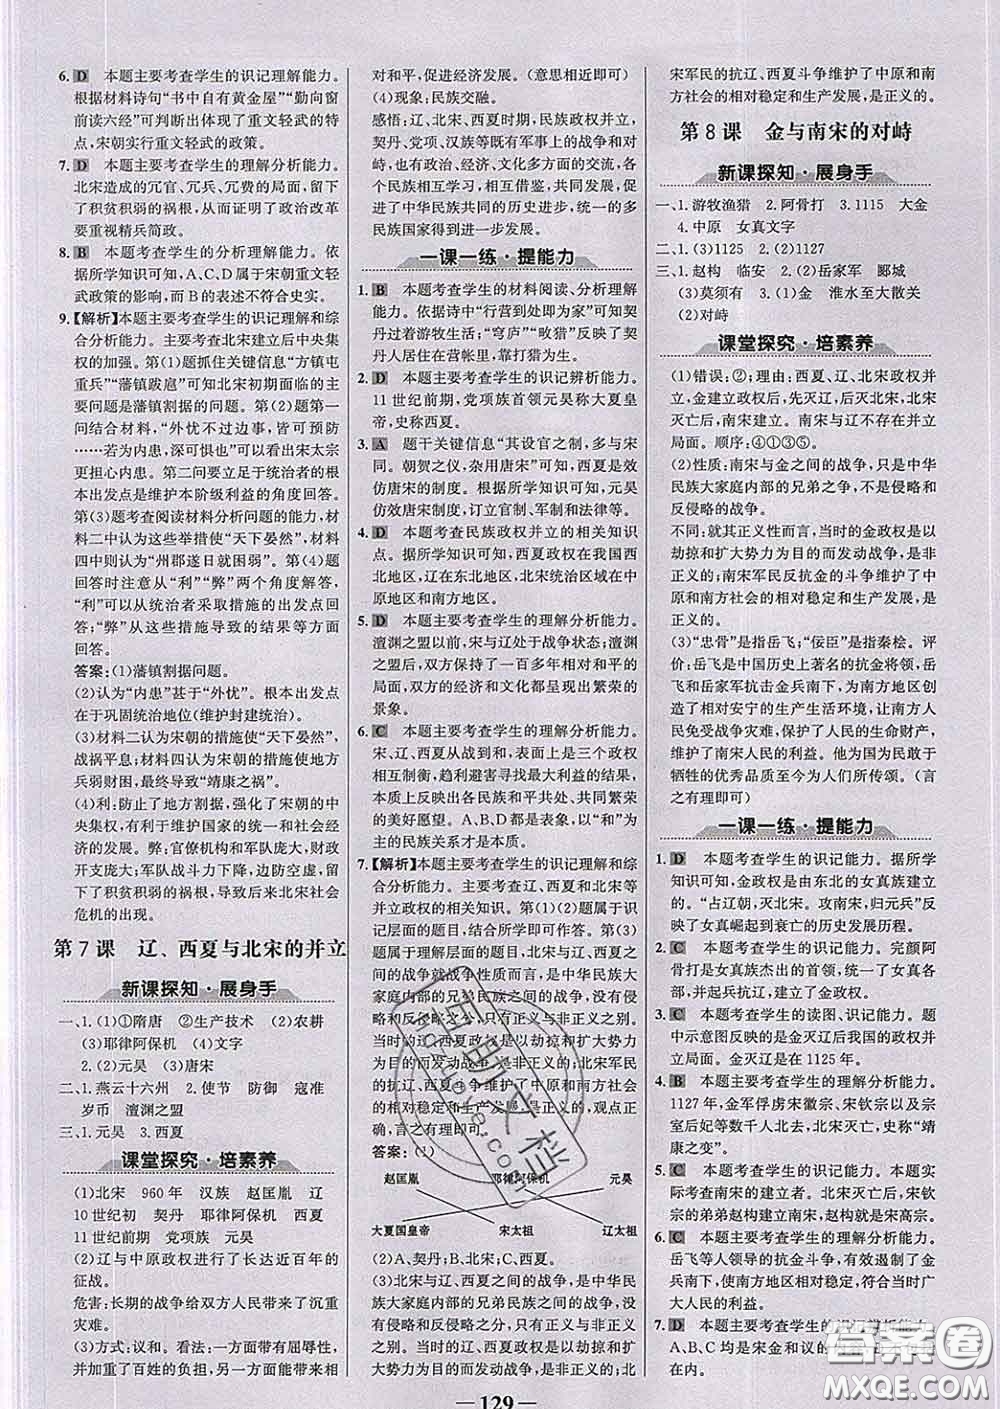 6. D 本题主要考查学生的识记理解能力。
根据材料诗句“书中自有黄金屋”“勤向窗
前读六经”可判断出体现了重文轻武的特
点,宋朝实行重文轻武的政策。
7. D 本题主要考查学生的理解分析能力。
北宋造成的冗官、冗兵、冗费的局面,留下
了积贫积弱的祸根,从而证明了政治改革
要重视精兵简政。
8. B 本题考查学生的分析理解能力。依
据所学知识可知,A、C、D属于宋朝重文轻
武政策的影响,而B的表述不符合史实。
9.【解析】本题主要考查学生的识记理解和综
合分析能力。主要考查北宋建立后中央集
权的加强。第(1)题抓住关键信息“方镇屯
重兵”“藩镇跋扈”可知北宋初期面临的主
要问题是藩镇割据的问题。第(2)题第一
问结合材料,“外忧不过边事,皆可预防
……若为内患,深可惧也”可以看出宋太宗
更担心内患。第二问要立足于统治者的根
本出发点是维护本阶级利益的角度回答。
第(3)题考查阅读材料分析问题的能力,材
料二中认为这些举措使“天下晏然”,材料
四中则认为“州郡遂日就困弱”。第(4)题
回答时注意从“利”“弊”两个角度解读,
“利”可以从统治者采取措施的出发点回
答;“弊”从这些措施导致的结果等方面
回答。
答案:(1)藩镇割据问题。
(2)认为“内患”甚于“外忧”。根本出发点
在于巩固统治地位(维护封建统治)。
(3)材料二认为宋朝的措施使“天下晏然”,
战祸平息;材料四认为宋朝的措施使地方
兵弱财困,最终导致“靖康之祸”。
(4)利:防止了地方割据,强化了宋朝的中
央集权,有利于维护国家的统一、社会和经
济的发展。弊:官僚机构和军队庞大,财政
开支庞大;军队战斗力下降,边防空虚;
留下了积贫积弱的祸根,导致后来北宋社会
危机的出现。
第7课 辽、西夏与北宋的并立
新课探知·展身手
一、1.(1)①隋唐 ②生产技术 (2)农耕
(3)耶律阿保机 (4)文字
2.(2)元昊 (3)唐宋
二、1.燕云十六州 2.使节 防御 寇准
岁币 澶渊之盟
三、1.元昊 3.西夏
课堂探究·培素养
(1)北宋 960年 汉族 赵匡胤 辽
10世纪初 契丹 耶律阿保机 西夏
11世纪前期 党项族 元昊
(2)辽与中原政权进行了长达近百年的
征战。
危害:长期的战争给双方人民带来了沉重
灾难。
(3)方式:议和。看法:一方面带有屈辱性,
并加重了百姓的负担,另一方面维护了相
对和平,促进经济发展。(意思相近即可)
(4)现象:民族交融。
感悟:辽、北宋、西夏时期,民族政权并立,
契丹、党项、汉族等既有军事上的战争与对
峙,也有政治、经济、文化多方面的交流,各
个民族相互学习,相互借鉴,共同进步,促
进了中华民族共同的历史进步,统一的多
民族国家得到进一步发展。
一课一练·提能力
1. B 本题考查学生的材料阅读、分析理解
能力。依据诗中“行营到处即为家”可知契
丹过着游牧生活;“穹庐”“畋猎”反映了契
丹人居住在营帐里,靠打猎为生。
2. D 本题主要考查学生的识记辨析能力。
11世纪前期,党项族首领元昊称大夏皇
帝,史称西夏。
3. A 题干关键信息“其设官之制,多与宋
同。朝贺之仪,杂用唐宋”可知,西夏是效
仿唐宋的制度。根据所学知识可知,元昊
仿效唐宋制度,订立官制、军制和法律等。
4. D 本题考查民族政权并立的相关知识
点。据所学知识可知,西夏政权在我国西
北地区,辽在东北地区,北宋统治区域在中
原和南方地区。
5. D 本题主要考查学生的理解分析能力。
澶渊之盟以前,宋与辽处于战争状态;澶渊
之盟后,双方保持了一百多年相对和平的
局面,双方的经济和文化都呈现出繁荣的
景象。
6. C 本题主要考查学生的理解分析能力。
宋、辽、西夏从战到和,表面上是三个政权
相互制衡,趋利避害寻找最大利益的结果,
本质上体现了各民族和平共处、共同繁荣
的美好愿望。A、B、D都是表象,以“和”为
主的民族关系才是本质。
7.【解析】本题主要考查学生的识记理解和综
合分析能力。主要考查辽、西夏和北宋等
并立政权的相关知识。第(1)(2)题属于识
记层面的题目,结合所学即可作答。第(3)
题属于理解层面的题目,北宋与辽、西夏之
间的战争就战争性质而言,都是中华民族大
家庭内部的兄弟民族之间的战争,没有侵
略和反侵略之分,只有正义与非正义之别。
当时的辽、西夏的战争是以劫掠和扩大势力
为目的而发动战争,是非正义的;北宋军民
抗辽、西夏斗争维护了中原和南方社会的相
对稳定和生产发展,是正义的,观点正确,
言之有理即可。
答案:(1)
赵匡胤 耶律阿保机 元昊
大夏国皇帝 宋太祖 辽太祖
(2)A、契丹;B、北宋;C、西夏。
(3)北宋与辽、西夏之间的战争,是中华民
族大家庭内部的兄弟民族之间的战争,没
有侵略和反侵略之分,只有正义与非正义
之别。当时的辽、西夏的战争是以劫掠和扩
大势力为目的而发动战争,是非正义的;北
宋军民的抗辽、西夏斗争维护了中原和南
方社会的相对稳定和生产发展,是正义的。
第8课 金与南宋的对峙
新课探知·展身手
一、1.游牧渔猎 2.阿骨打 3.1115 大金
4.中原 女真文字
二、1.(3)1125 2.(2)1127
三、1.赵构 临安 2.(2)岳家军 郾城
(3)莫须有 3.(1)金 淮水至大散关
(2)对峙
课堂探究·培素养
(1)错误:②;理由:西夏、辽、北宋政权并
立,金建立政权后,先灭辽,后灭北宋,北宋
灭亡后,南宋建立。南宋与辽不存在并立
局面。顺序:④①③⑤。
(2)性质:南宋与金之间的战争,只是中华
民族大家庭内部的兄弟之争,不是侵略和
反侵略的战争。
不同:就其正义性而言,当时的金政权是以
劫掠和扩大势力为目的而发动战争,是非
正义的;南宋军民反抗金的斗争维护了中
原和南方社会的相对稳定和生产发展,是
正义的。
(3)“忠骨”是指岳飞;“佞臣”是指秦桧。评
价:岳飞是中国历史上著名的抗金将领,在
岳飞和岳家军抗击金兵南下,为南方地区创
造了相对安宁的生产生活环境,让南方人
民免受战争灾难,保护了人民的生命财产,
维护了南宋人民的利益。他为国为民敢于
牺牲的优秀品质至今为人们所传颂。(言
之有理即可)
一课一练·提能力
1. D 本题考查学生的识记能力。据所学
知识可知,金政权是由东北的女真族建立
的。“占辽朝,灭北宋。攻南宋,归元兵”反
映了女真崛起到衰亡的历史发展历程。
2. C 本题考查学生的识记能力。完颜阿
骨打是女真族杰出的首领,他统一了女真各
部,起兵抗辽,建立了金政权。
3. C 本题考查学生的读图、识记能力。题
中示意图反映的是金灭辽后我国的政权并
立局面。金灭辽是在1125年。
4. B 本题主要考查学生的理解分析能力。
1127年,金军俘虏宋徽宗、宋钦宗以及宗
室后妃等数千人北去,北宋灭亡,史称“靖
康之变”。
5. C 本题主要考查学生的识记能力。本题
实际考查南宋的建立。北宋灭亡后,宋钦
宗的弟弟赵构称帝,赵构就是宋高宗。
6. C 本题主要考查学生的理解分析能力。
岳飞等人领导的抗金斗争,有效遏制了金
兵南下,使南方地区相对稳定,符合当时广
大人民的利益。
7. D 本题主要考查学生的识记掌握能力。
本题主要考查宋金和议的内容,D项不包含
在内。
— 129 —
答案圈
MXQE.COM